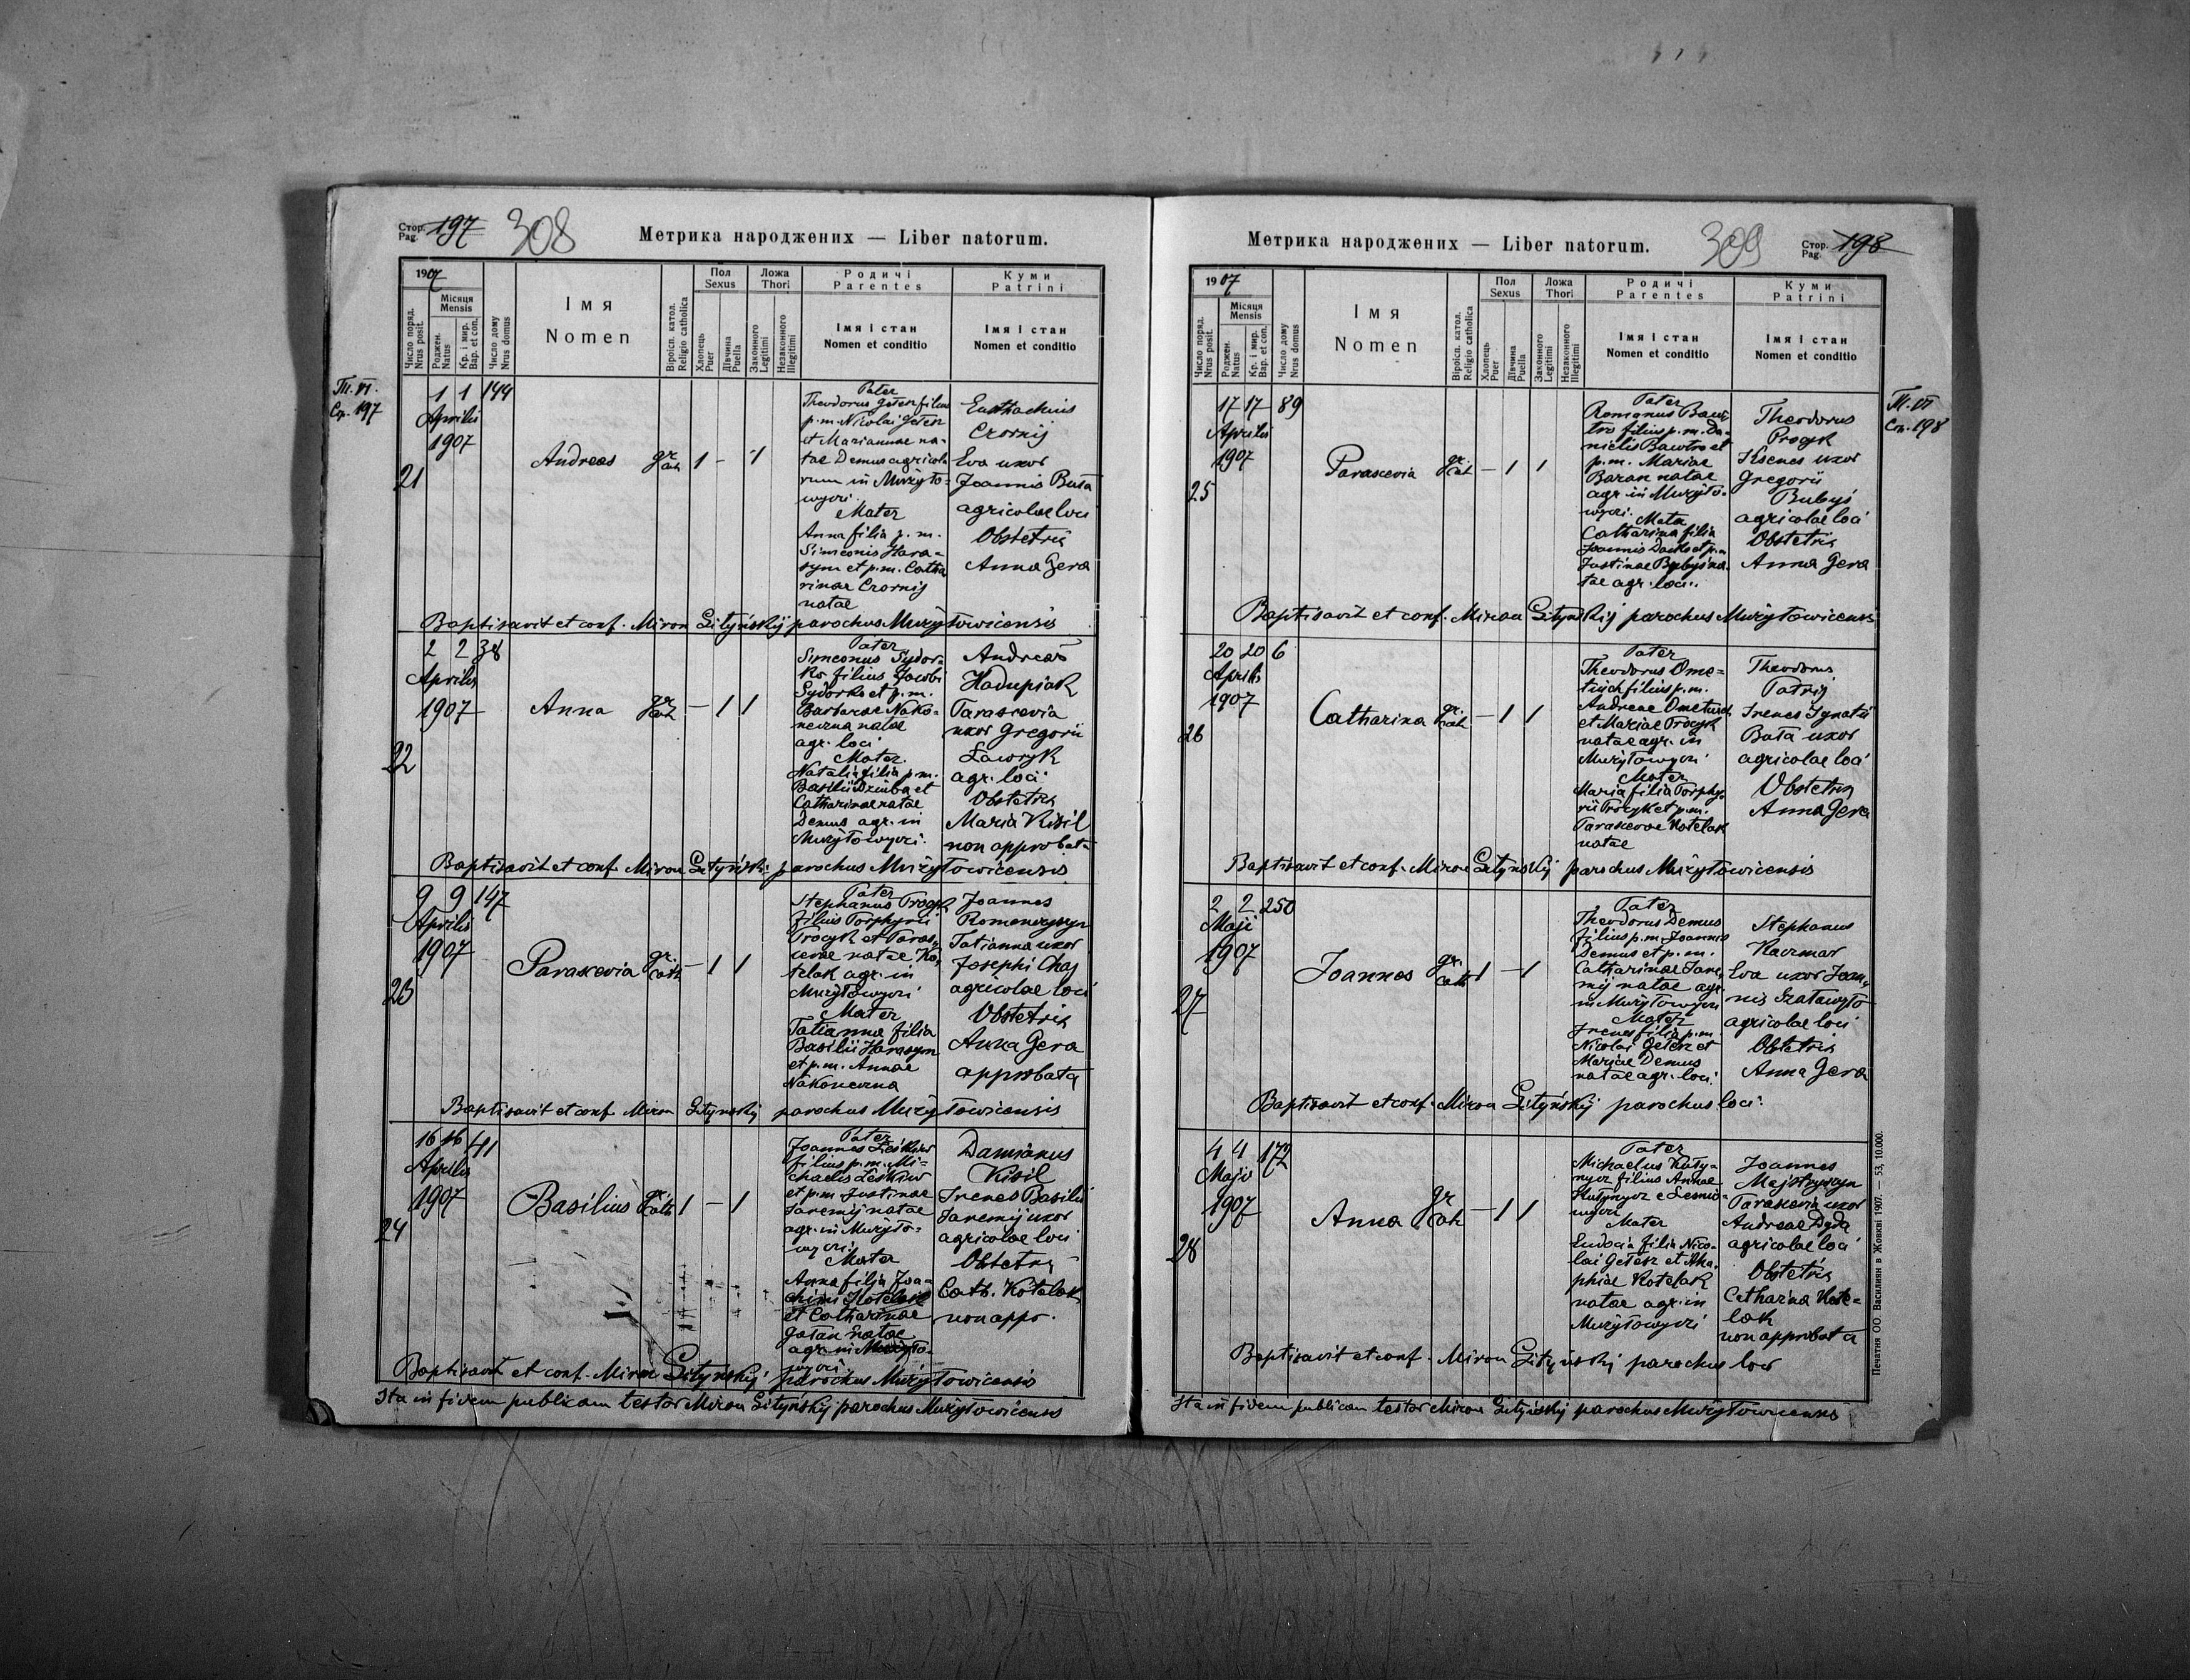 Стор. Pag. 197 308
Метрика народжених — Liber natorum.
Т. VI.
Ст. 197
1907
Число поряд. Nrus posit.
Місяця Mensis
Роджен. Natus
Кр. і мир. Bap. et con.
Число дому Nrus domus
Імя
Nomen
Віроісп. катол. Religio catholica
Пол Sexus
Хлопець Puer
Дівчина Puella
Ложа Thori
Законного Legitimi
Незаконного Illegitimi
Родичі Parentes
Імя і стан
Nomen et conditio
Куми Patrini
Імя і стан
Nomen et conditio
21
1 1 144
Aprilis
1907
Andreas
gr. cat.
1 - 1
Pater
Theodorus Geten filius
p. m. Nicolai Geten
et Mariannae na-
tae Demus agricola
rum in Mużyło-
wyczi.
Mater
Anna filia p. m.
Simeonis Hara-
sym et p. m. Catha
rinae Czornij
natae
Eusthachius
Czornij
Eva uxor
Joannis Buta
agricolae loci
Obstetrix
Anna Gera
Baptisavit et conf. Miron Gityńskij parochus Mużyłowicensis
22
2 2 38
Aprilis
1907
Anna
gr. cat.
- 1 1
Pater
Simeonus Sydor-
ko filius Jacobi
Sydorko et p. m.
Barbarae Nako-
neczna natae
agr. loci
Mater
Natalia filia p. m.
Basilii Dziuba et
Catharinae natae
Demus agr. in
Mużyłowyczi.
Andreas
Hadupiak
Parascevia
uxor Gregorii
Ławryk
agr. loci
Obstetrix
Maria Kisil
non approbata
Baptisavit et conf. Miron Gityński parochus Mużyłowicensis
23
9 9 147
Aprilis
1907
Parascevia
gr. cath.
- 1 1
Pater
Stephanus Procyk
filius Porphyrii
Procyk et Paras-
cevae natae Ko-
telak agr. in
Mużyłowyczi
Mater
Tatianna filia
Basilii Harasym
et p. m. Annae
Nakoneczna
Joannes
Romanczyszyn
Tatianna uxor
Josephi Chaj
agricolae loci
Obstetrix
Anna Gera
approbata
Baptisavit et conf. Miron Gitynskij parochus Mużyłowicensis
24
16 16 41
Aprilis
1907
Basilius
gr. cath.
1 - 1
Pater
Joannes Leśkiw
filius p. m. Mi-
chaelis Leśkiw
et p. m. Justinae
Jaremij natae
agr. in Mużyło-
wyczi.
Mater
Anna filia Joa-
chimi Kotelak
et Catharinae
natae
agr. in Mużyło-
wyczi
Damianus
Kisil
Irenes Basilii
Jaremij uxor
agricolae loci
Obstetrix
Cath. Kotelak
non appr.
Baptisavit et conf. Miron Gitynskij parochus Mużyłowicensis
Ita in fidem publicam testor Miron Gityńskij parochus Mużyłowicensis
Метрика народжених — Liber natorum.
309 Стор. Pag. 198
Т. VI
Ст. 198
1907
Число поряд. Nrus posit.
Місяця Mensis
Роджен. Natus
Кр. і мир. Bap. et con.
Число дому Nrus domus
Імя
Nomen
Віроісп. катол. Religio catholica
Пол Sexus
Хлопець Puer
Дівчина Puella
Ложа Thori
Законного Legitimi
Незаконного Illegitimi
Родичі Parentes
Імя і стан
Nomen et conditio
Куми Patrini
Імя і стан
Nomen et conditio
25
17 17 89
Aprilis
1907
Parascevia
gr. cat.
- 1 1
Pater
Romanus Baw-
tro filius p. m. Da-
nielis Bawtro et
p. m. Mariae
Baran natae
agr. in Mużyło-
wyczi.
Mater
Catharina filia
Joannis et p. m.
Justinae Bubyś na-
tae agr. loci.
Theodorus
Procyk
Ksenes uxor
Gregorii
Bubyś
agricolae loci
Obstetrix
Anna Gera
Baptisavit et conf. Miron Gitynskij parochus Mużyłowicensis
26
20 20 6
Aprilis
1907
Catharina
gr. cath.
- 1 1
Pater
Theodorus Ome-
tiuch filius p. m.
Andreae Ometiuch
et Mariae Procyk
natae agr. in
Mużyłowyczi
Mater
Maria filia Porphy-
rii Procyk et p. m.
Parascevae Kotelak
natae
Theodorus
Patrij
Irenes Ignatii
Buta uxor
agricolae loci
Obstetrix
Anna Gera
Baptisavit et conf. Miron Gitynskij parochus Mużyłowicensis
27
2 2 250
Maji
1907
Joannes
gr. cath.
1 - 1
Pater
Theodorus Demus
filius p. m. Joannis
Demus et p. m.
Catharinae Jare-
mij natae agr.
in Mużyłowyczi
Mater
Irenes filia p. m.
Nicolai Geten et
Mariae Demus
natae agr. loci.
Stephanus
Kaczmar
Eva uxor Joan-
nis Szatawyło
agricolae loci
Obstetrix
Anna Gera
Baptisavit et conf. Miron Gityńskij parochus loci.
28
4 4 172
Maji
1907
Anna
gr. cath.
- 1 1
Pater
Michaelus
filius Annae
e Lesnio-
wyczi
Mater
Eudocia filia Nico-
lai Geten et Aha-
phiae Kotelak
natae agr. in
Mużyłowyczi
Joannes
Majstryszyn
Parascevia uxor
Andreae Dyda
agricolae loci
Obstetrix
Catharina Kote-
lak
non approbata
Baptisavit et conf. Miron Gityński parochus loci
Ita in fidem publicam testor Miron Gityńskij parochus Mużyłowicensis
Печатня ОО. Василиян в Жовкві 1907. — 53, 10.000.